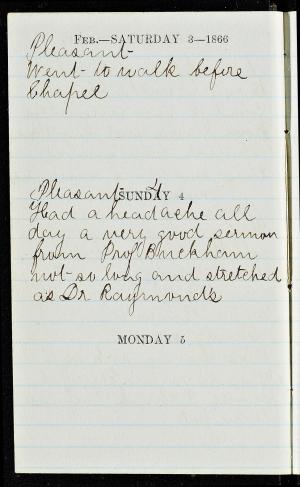 FEB.—SATURDAY 3—1866
Pleasant-
Went to walk before
Chapel
SUNDAY 4
Pleasant- 4
Had a headache all
day a very good sermon
from Prof Buckham
not so long and stretched
as Dr Raymonds
MONDAY 5